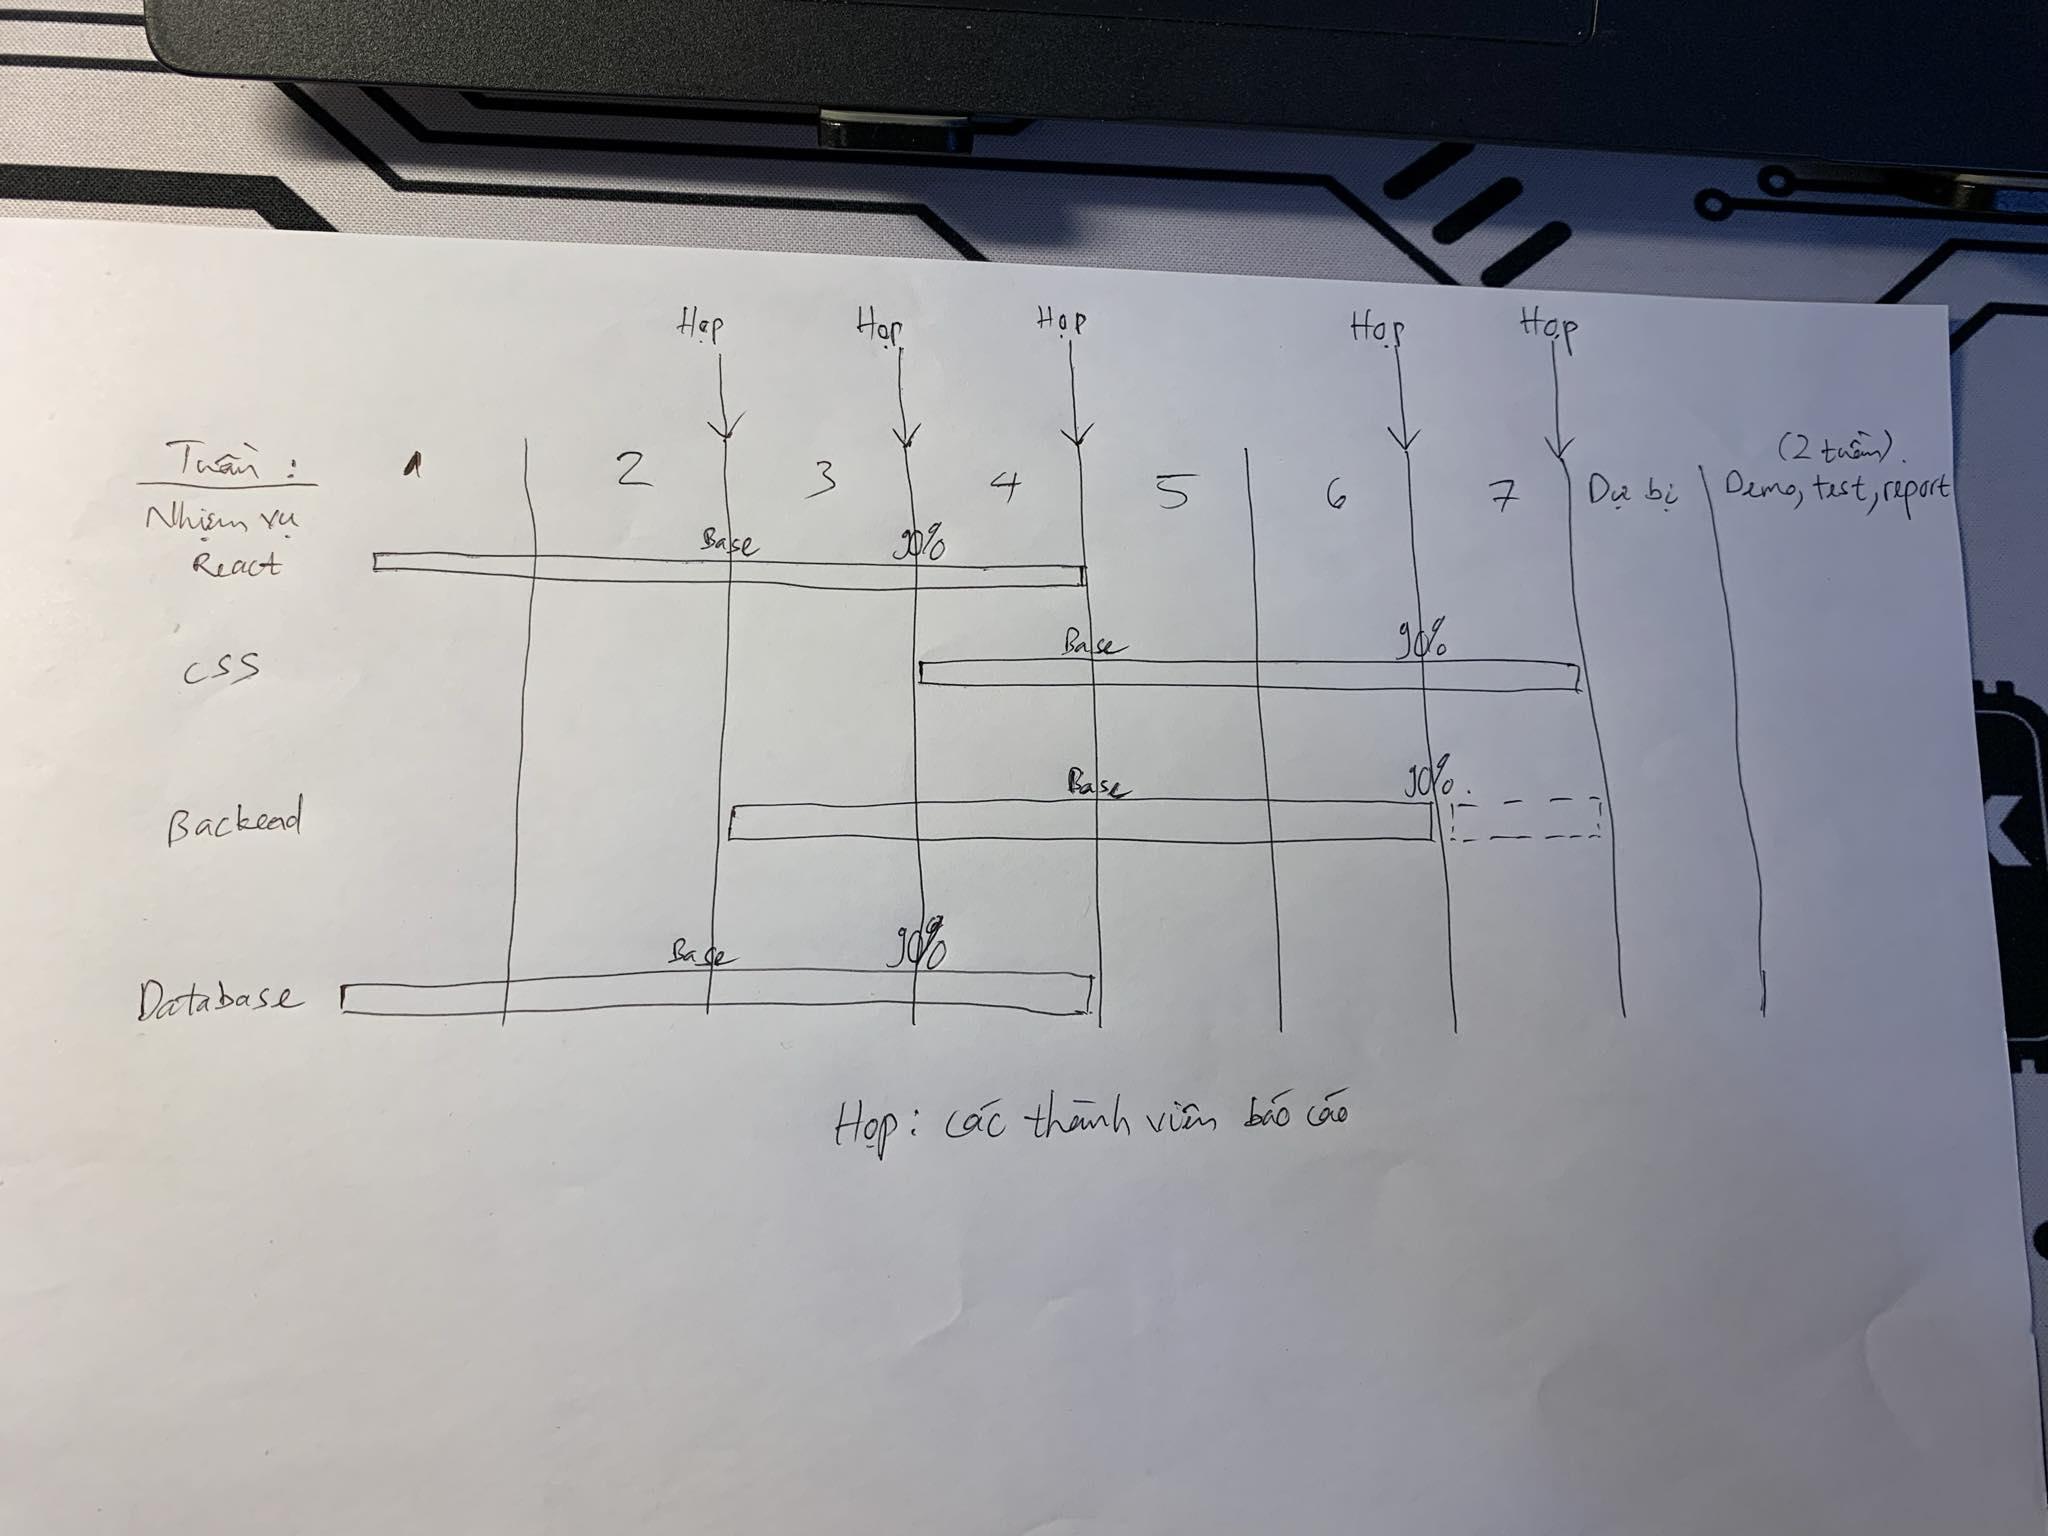 Họp Họp Họp Họp Họp
(2 tuần).
Tuần: 1 2 3 4 5 6 7 Dự bị Demo, test, report
Nhiệm vụ
Base 90%
React
Base 90%
CSS
Base 90%.
Backend
Base 90%
Database
Họp: các thành viên báo cáo